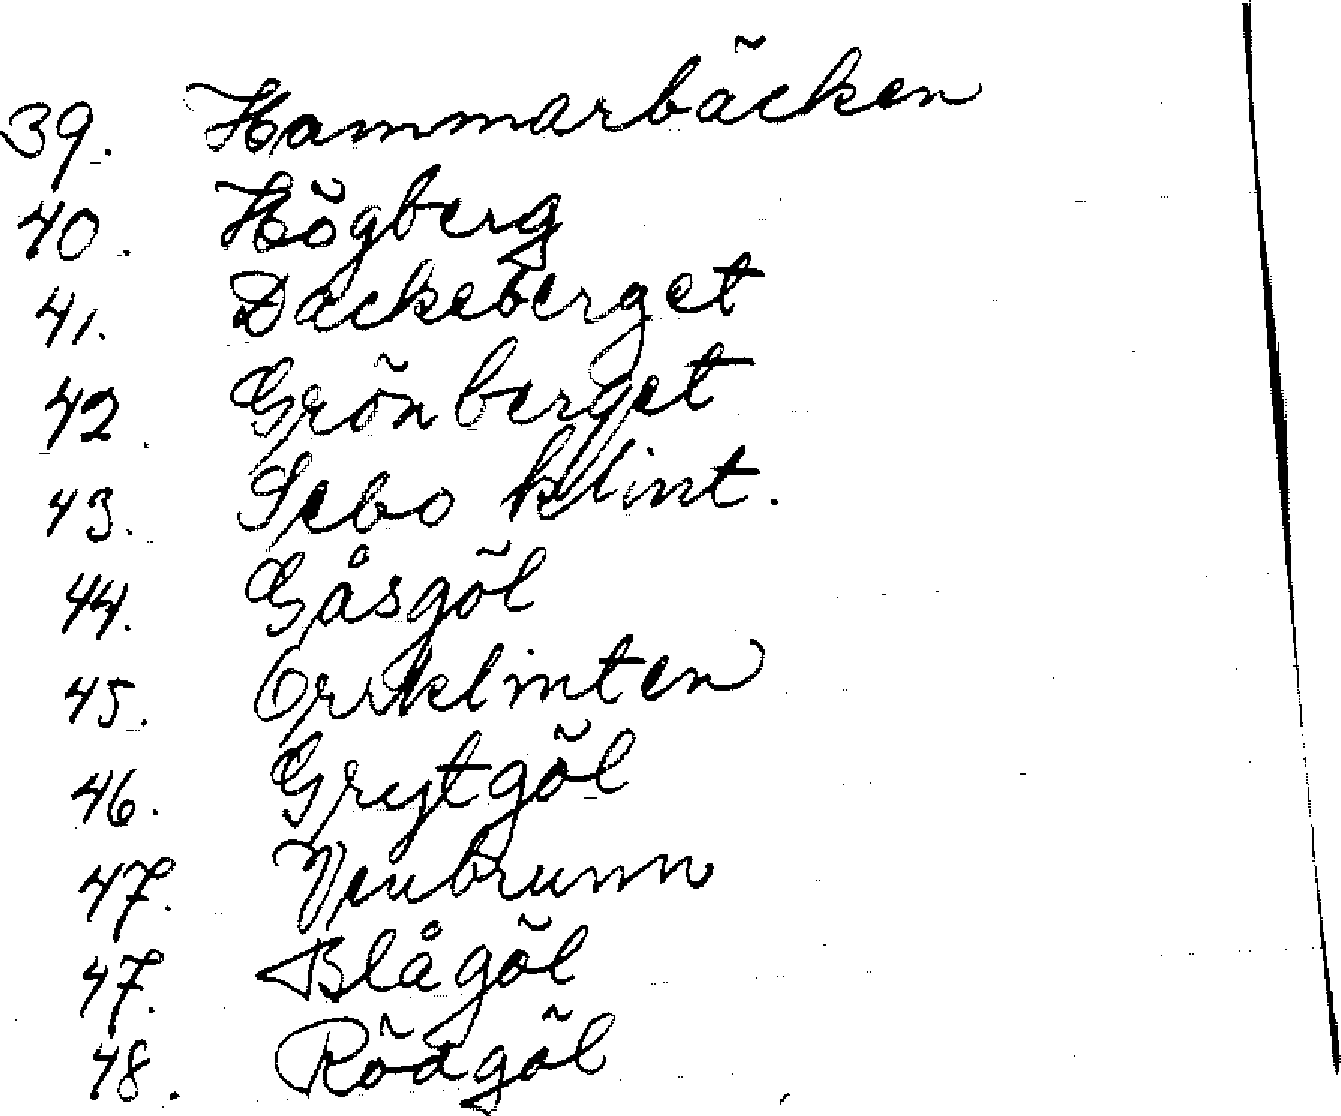 39. Hammarbäcken
40. Högberg
41. Dackeberget
42. Grönberget
43. Sebo klint.
44. Gåsgöl
45. Orrklinten
46. Grytgöl
47. brunn
47. Blågöl
48. Rödgöl